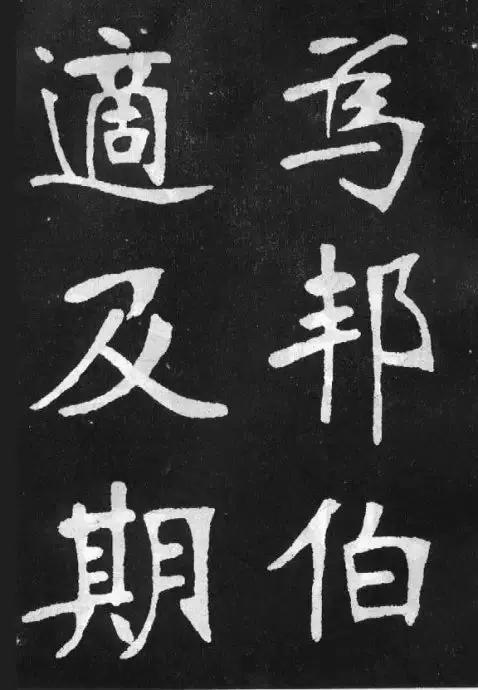 爲邦伯
適及期